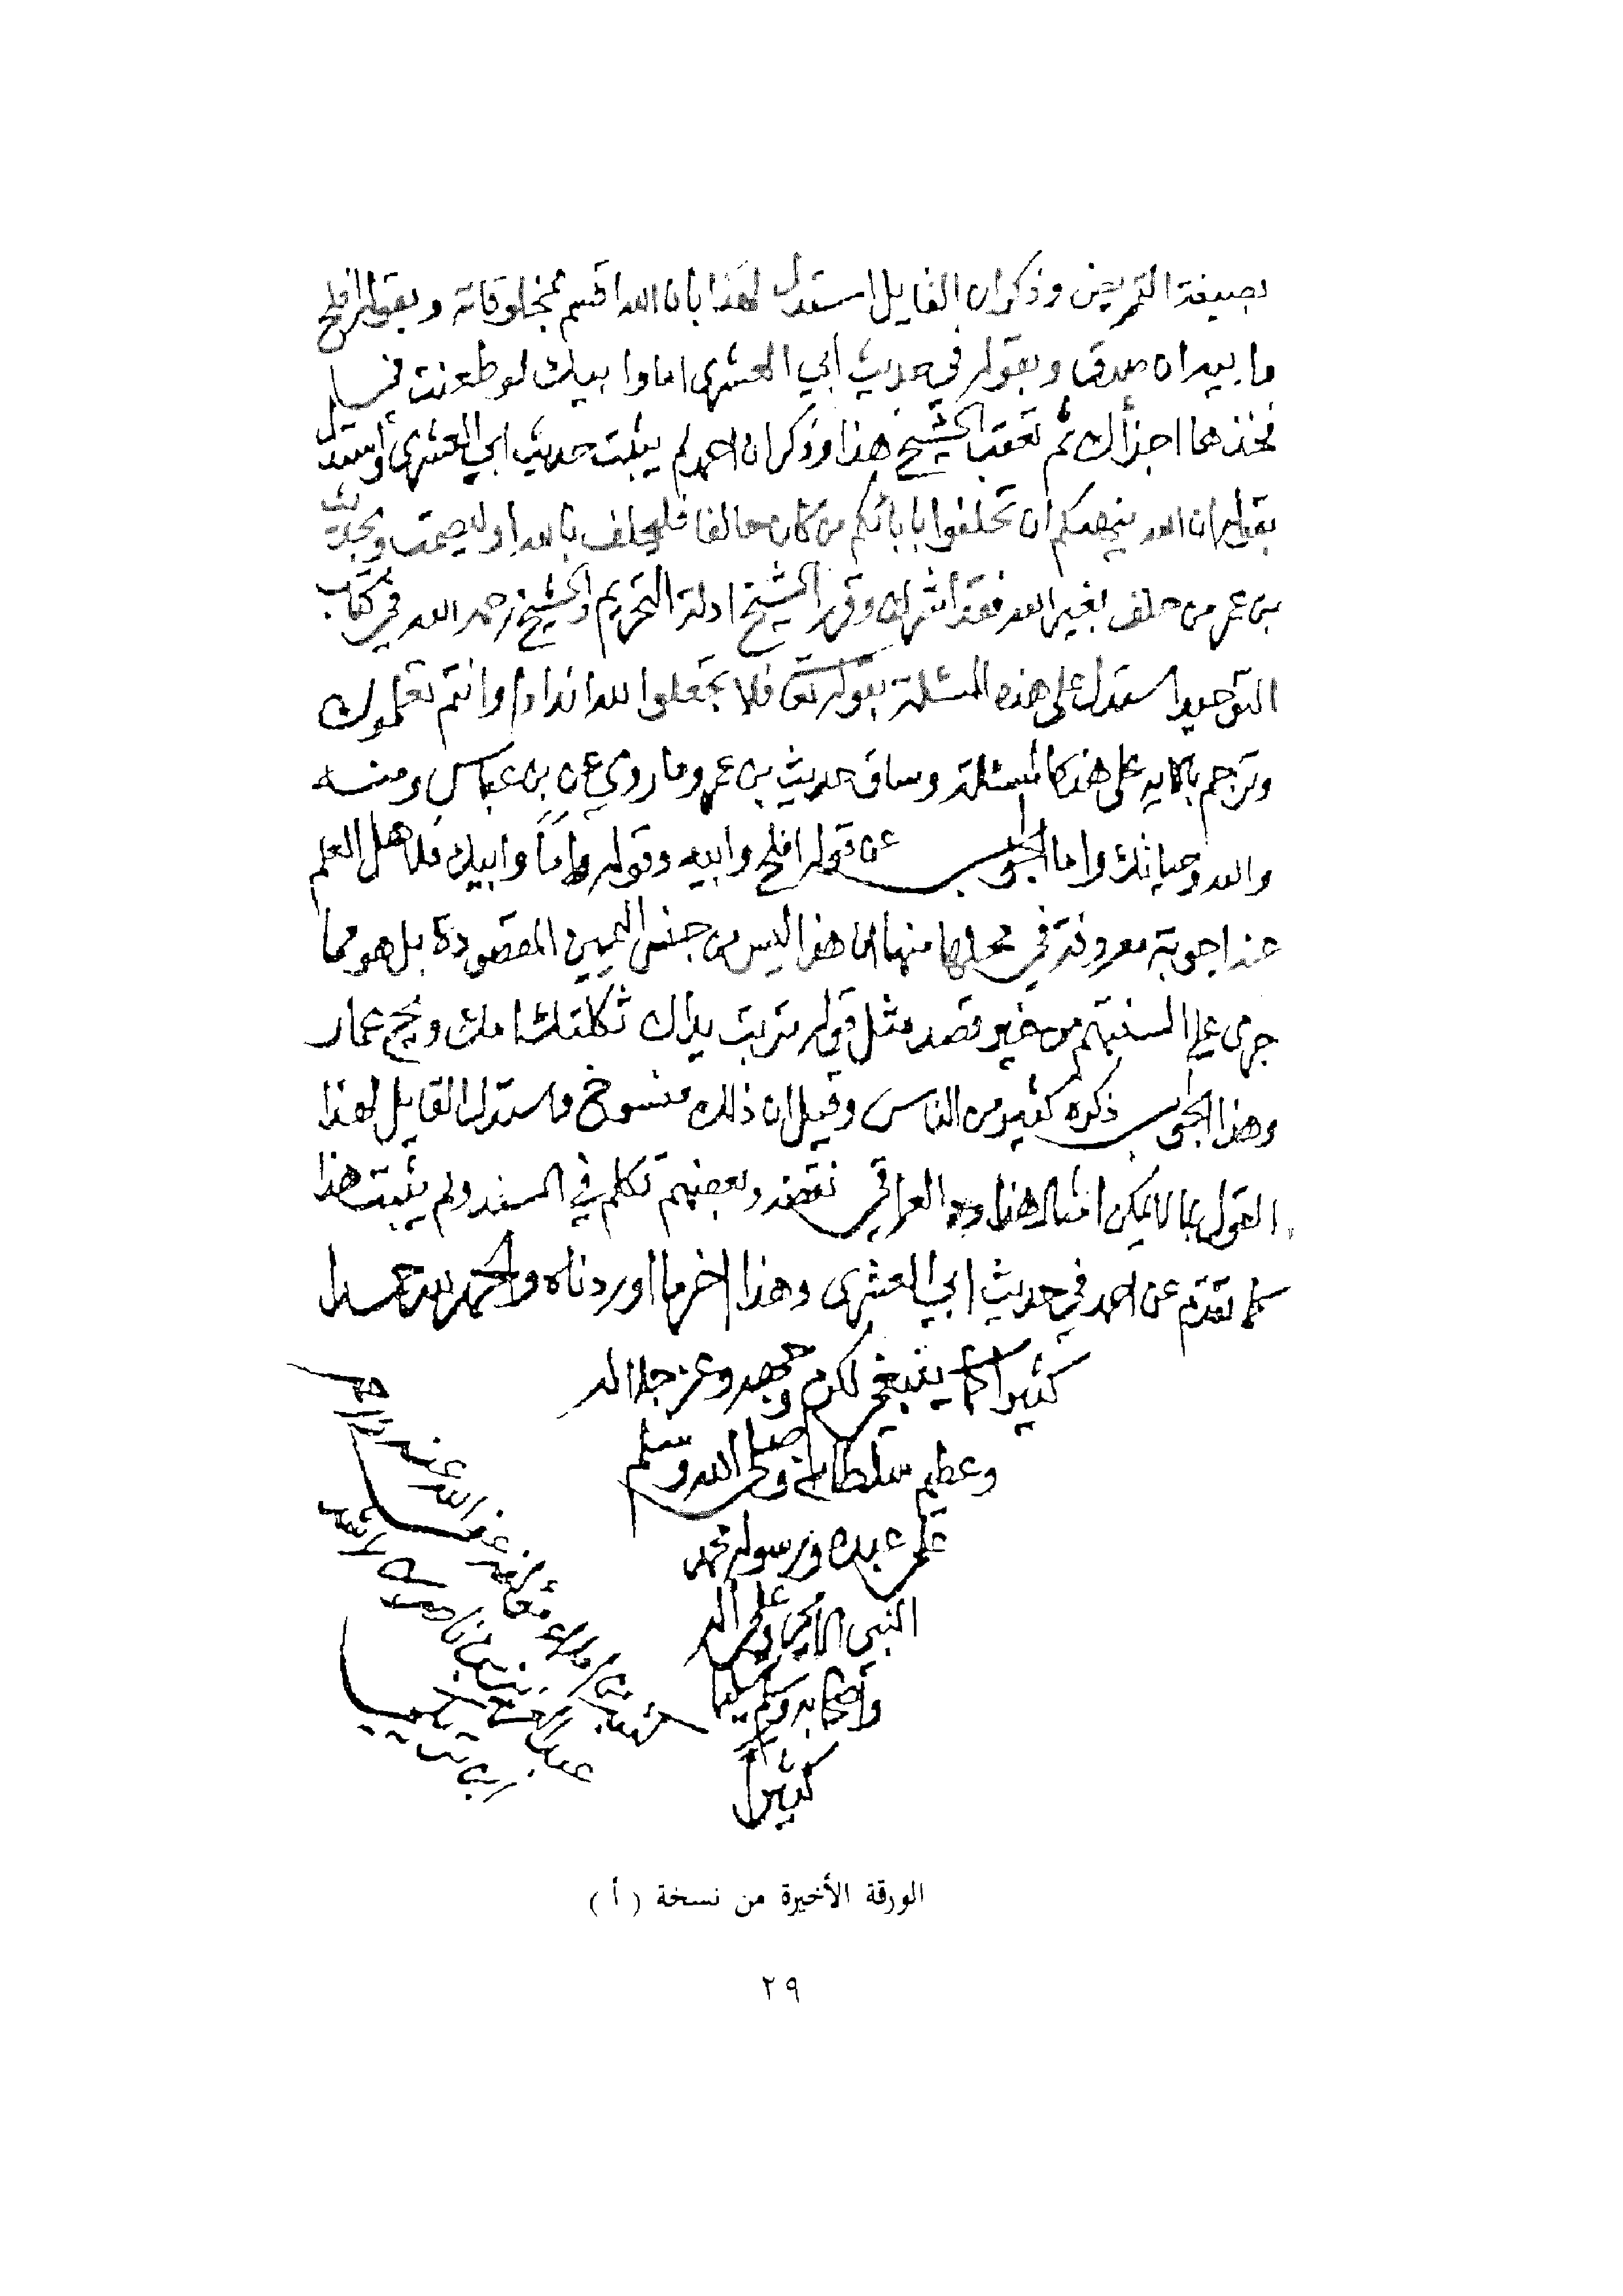 بصيغة التمريض وذكر ان القايل استدل لهذا بان الله اقسم بمخلوقاته وبقوله افلح
وابيه ان صدق وبقوله في حديث ابي العشرى اما وابيك لو طعنت في
فخذها اجزأك ثم تعقب الشيخ هذا وذكر ان احمد لم يثبت حديث ابي العشرى واستدل
بقوله ان الله ينهيكم ان تحلفوا بابائكم من كان حالفا فليحلف بالله او ليصمت وبحديث
بن عمر من حلف بغير الله فقد اشرك وقرر الشيخ ادلة التحريم والشيخ رحمه الله في كتاب
التوحيد استدل على هذه المسئلة بقوله تعا فلا تجعلوا لله اندادا وانتم تعلمون
وترجم بالايه على هذه المسئلة وساق حديث بن عمر وما روي عن بن عباس ومنه
والله وحياتك واما الجواب عن قوله افلح وابيه وقوله اما وابيك فلاهل العلم
عنه اجوبة معروفة في محلها منها ان هذا ليس من جنس اليمين المقصودة بل هو مما
جرى على السنتهم من غير قصد مثل قوله تربت يداك ثكلتك امك ويح عمار
وهذا الجواب ذكره كثير من الناس وقيل ان ذلك منسوخ واستدل القايل لهذا
القول بما لا يمكن العراقي نقضه وبعضهم تكلم في السند ولم يثبت هذا
كما تقدم عن احمد في حديث ابي العشرى وهذا اخر ما اوردناه والحمد لله حمدا
كثيرا كما ينبغي لكرم وجهه وعز جلاله
وعظيم سلطانه وصلى الله وسلم
على عبده ورسوله محمد
النبي الامي وعلى اله
واصحابه وسلم تسليما
كثيرا
الورقة الأخيرة من نسخة ( أ )
٢٩